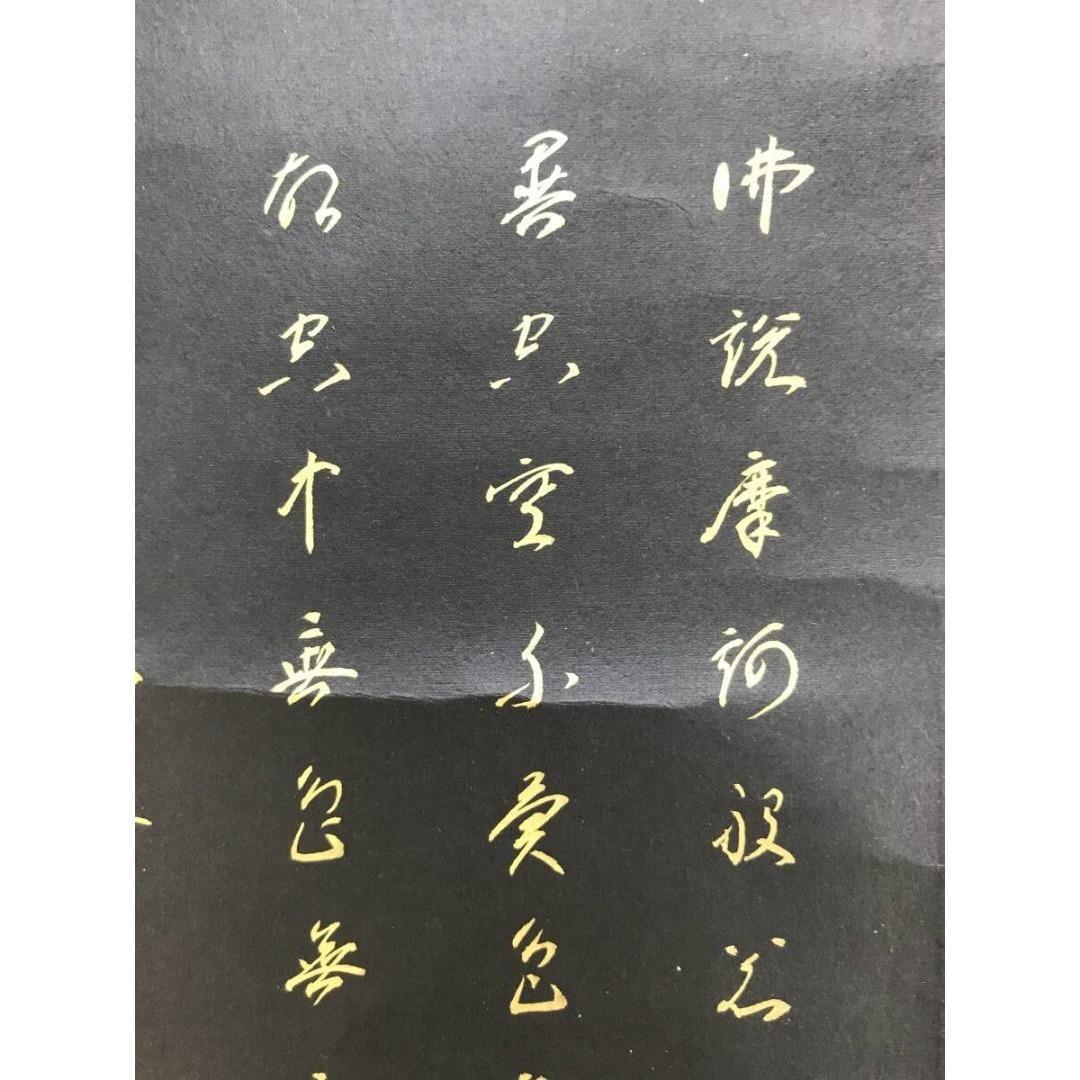 佛説摩訶般若
異空空不異色
故空中無色無